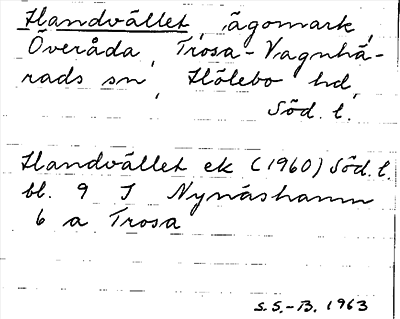 Handvället, ägomark,
Överåda, Trosa-Vagnhä-
rads sn, Hölebo hd,
Söd. l.
Handvället ek (1960) Söd. l.
bl. 9 I Nynäshamn
6 a Trosa
S.S.-B. 1963